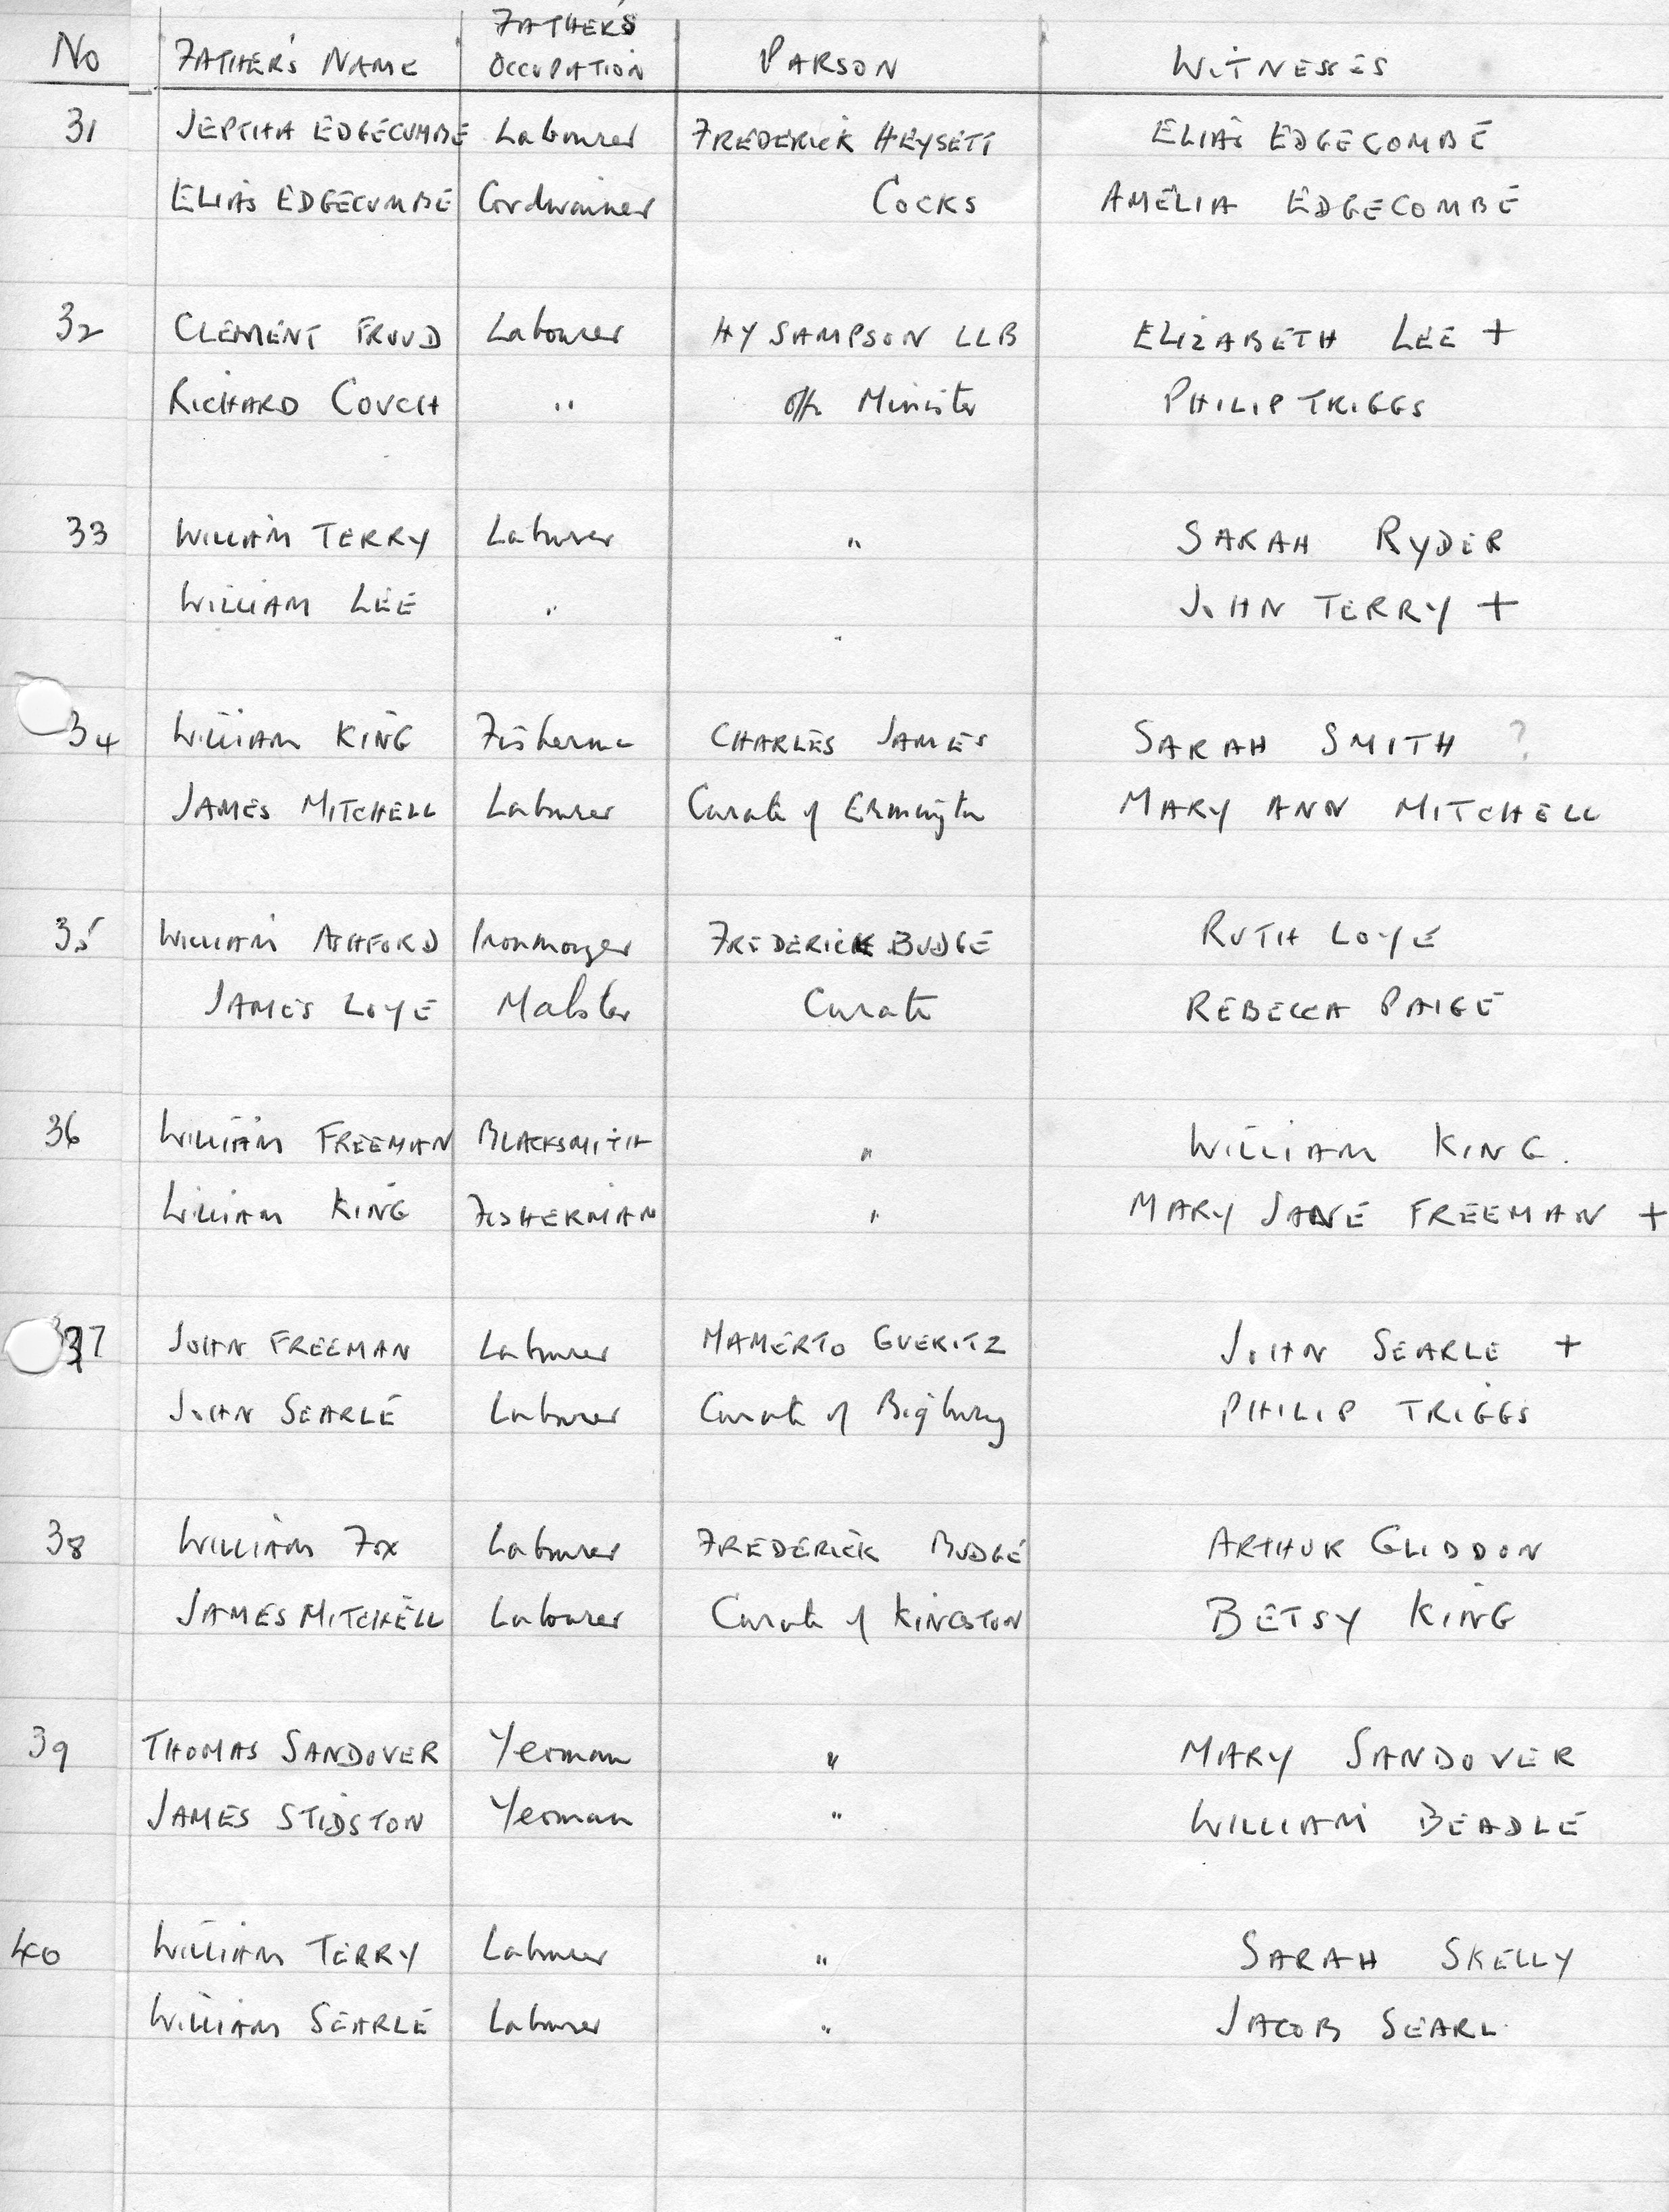 No FATHER'S NAME FATHER'S OCCUPATION PARSON WITNESSES
31 JEPTHA EDGECUMBE Labourer FREDERICK HEYSETT ELIAS EDGECOMBE
ELIAS EDGECUMBE Cordwainer COCKS AMELIA EDGECOMBE
32 CLEMENT FROUD Labourer HY SAMPSON LLB ELIZABETH LEE +
RICHARD COUCH " Off Minister PHILIP TRIGGS
33 WILLIAM TERRY Labourer " SARAH RYDER
WILLIAM LEE " JOHN TERRY +
34 WILLIAM KING SARAH SMITH ?
CHARLES JAMES
JAMES MITCHELL Labourer Curate of Ermington MARY ANN MITCHELL
35 WILLIAM ASHFORD Ironmonger FREDERICK BUDGE RUTH LOYE
JAMES LOYE Malster Curate REBECCA PAIGE
36 WILLIAM FREEMAN BLACKSMITH " WILLIAM KING.
WILLIAM KING FISHERMAN " MARY JANE FREEMAN +
37 JOHN FREEMAN Labourer MAMERTO GUERITZ JOHN SEARLE +
JOHN SEARLE Labourer Curate of Bigbury PHILIP TRIGGS
38 WILLIAM FOX Labourer FREDERICK BUDGE ARTHUR GLIDDON
JAMES MITCHELL Labourer Curate of KINGSTON BETSY KING
39 THOMAS SANDOVER Yeoman " MARY SANDOVER
JAMES STIDSTON Yeoman " WILLIAM BEADLE
40 WILLIAM TERRY Labourer " SARAH SKELLY
WILLIAM SEARLE Labourer " JACOB SEARL